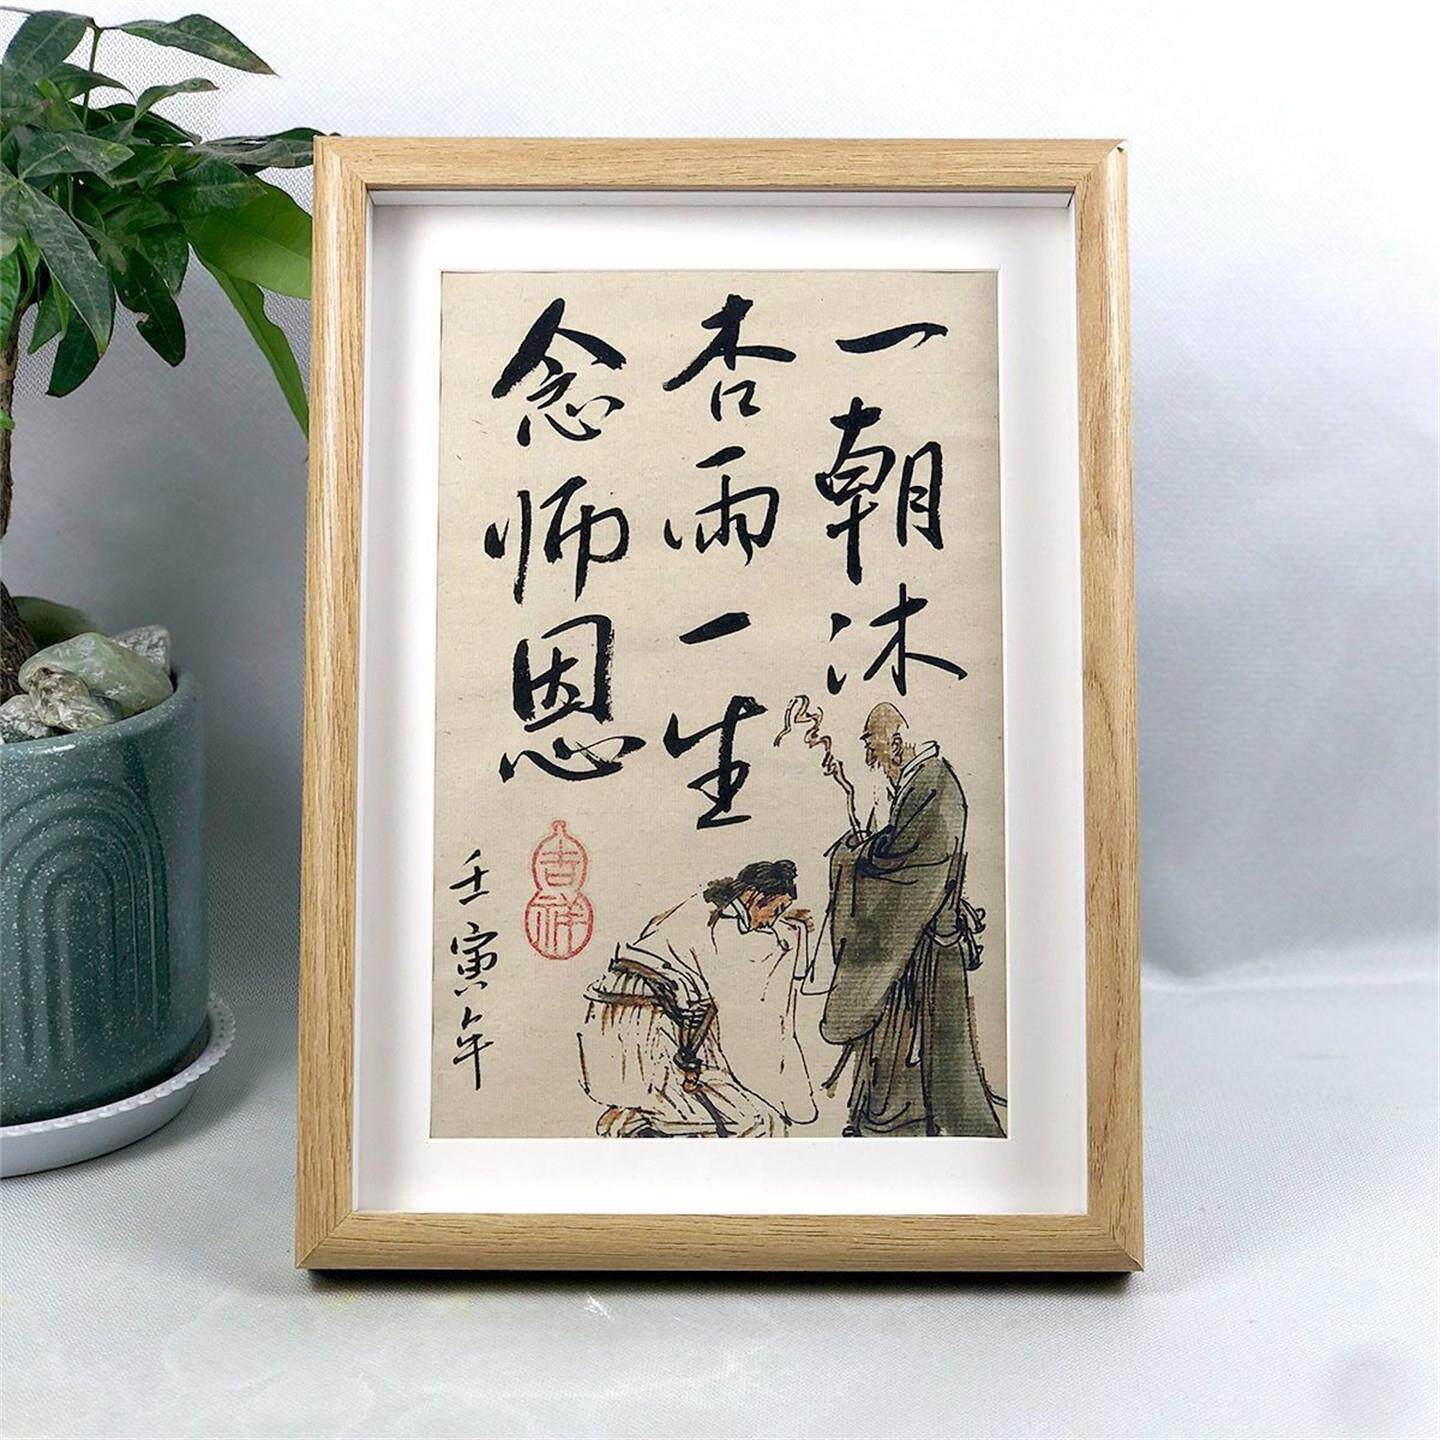 一朝沐
杏雨一生
念师恩
吉祥
壬寅年